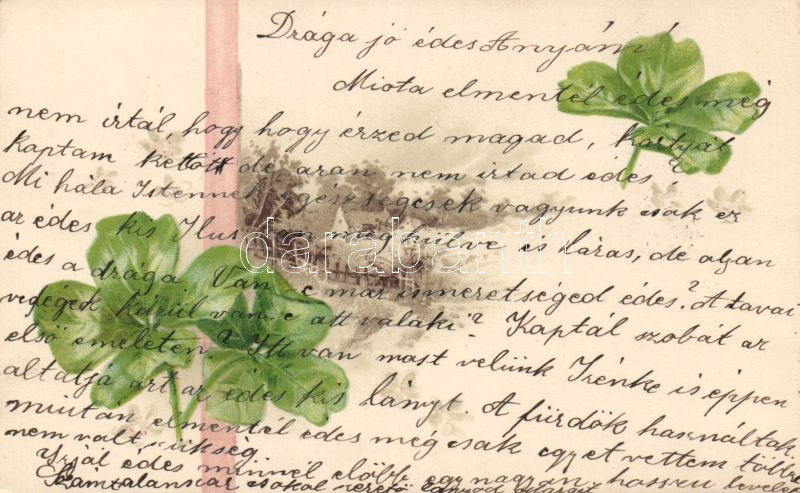 Drága jó édes Anyám!
Miota elmentél édes még
nem írtál, hogy hogy érzed magad, kártyát
kaptam kettőt de azon nem írtad édes.
Mi hála Istennek egészségesek vagyunk csak ez
az édes kis Ilus van meghülve és lázas, de olyan
édes a drága. Van-e már ismeretséged édes? A tavai
vegések közül van-e ott valaki? Kaptál szobát az
első emeleten? Itt van most velünk Irénke is éppen
altatjá ezt az édes kis lányt. A fürdők használtak
miután elmentél édes még csak egyet vettem többre
nem volt szükség.
Irjál édes minnél előbb egy nagyon hosszu levelet
Számtalanszor csókol szerető
darabanth